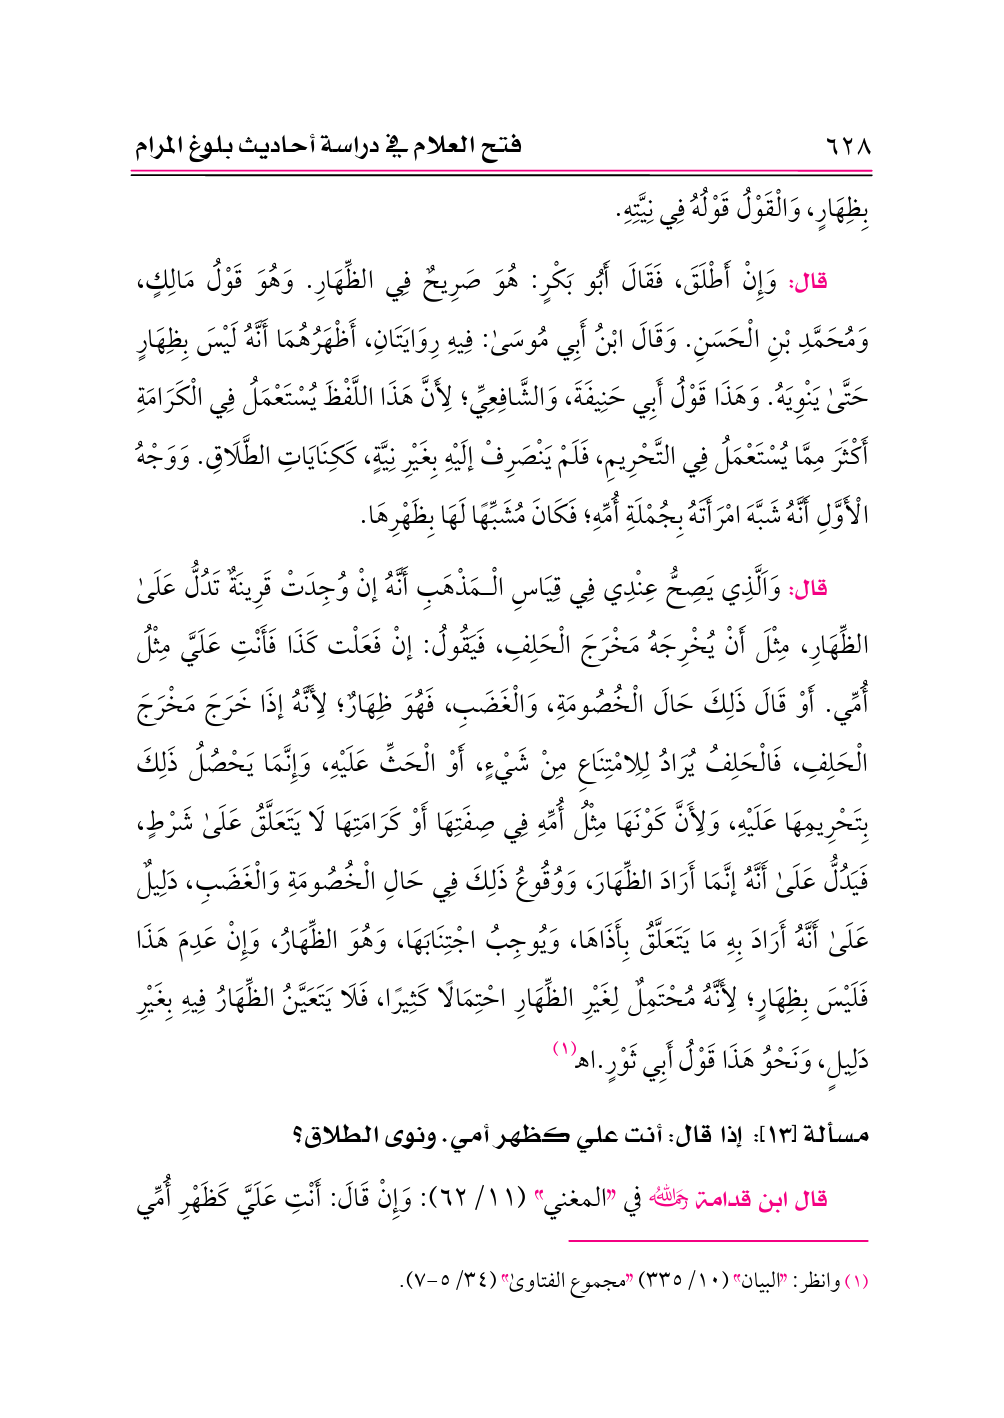 ٦٢٨ فتح العلام في دراسة أحاديث بلوغ المرام
بِظِهَارٍ، وَالْقَوْلُ قَوْلُهُ فِي نِيَّتِهِ.
قال: وَإِنْ أَطْلَقَ، فَقَالَ أَبُو بَكْرٍ: هُوَ صَرِيحٌ فِي الظِّهَارِ. وَهُوَ قَوْلُ مَالِكٍ،
وَمُحَمَّدِ بْنِ الْحَسَنِ. وَقَالَ ابْنُ أَبِي مُوسَىٰ: فِيهِ رِوَايَتَانِ، أَظْهَرُهُمَا أَنَّهُ لَيْسَ بِظِهَارٍ
حَتَّىٰ يَنْوِيَهُ. وَهَذَا قَوْلُ أَبِي حَنِيفَةَ، وَالشَّافِعِيِّ؛ لِأَنَّ هَذَا اللَّفْظَ يُسْتَعْمَلُ فِي الْكَرَامَةِ
أَكْثَرَ مِمَّا يُسْتَعْمَلُ فِي التَّحْرِيمِ، فَلَمْ يَنْصَرِفْ إلَيْهِ بِغَيْرِ نِيَّةٍ، كَكِنَايَاتِ الطَّلَاقِ. وَوَجْهُ
الْأَوَّلِ أَنَّهُ شَبَّهَ امْرَأَتَهُ بِجُمْلَةِ أُمِّهِ؛ فَكَانَ مُشَبِّهًا لَهَا بِظَهْرِهَا.
قال: وَاَلَّذِي يَصِحُّ عِنْدِي فِي قِيَاسِ الْـمَذْهَبِ أَنَّهُ إنْ وُجِدَتْ قَرِينَةٌ تَدُلُّ عَلَىٰ
الظِّهَارِ، مِثْلَ أَنْ يُخْرِجَهُ مَخْرَجَ الْحَلِفِ، فَيَقُولُ: إنْ فَعَلْت كَذَا فَأَنْتِ عَلَيَّ مِثْلُ
أُمِّي. أَوْ قَالَ ذَلِكَ حَالَ الْخُصُومَةِ، وَالْغَضَبِ، فَهُوَ ظِهَارٌ؛ لِأَنَّهُ إذَا خَرَجَ مَخْرَجَ
الْحَلِفِ، فَالْحَلِفُ يُرَادُ لِلِامْتِنَاعِ مِنْ شَيْءٍ، أَوْ الْحَثِّ عَلَيْهِ، وَإِنَّمَا يَحْصُلُ ذَلِكَ
بِتَحْرِيمِهَا عَلَيْهِ، وَلِأَنَّ كَوْنَهَا مِثْلُ أُمِّهِ فِي صِفَتِهَا أَوْ كَرَامَتِهَا لَا يَتَعَلَّقُ عَلَىٰ شَرْطٍ،
فَيَدُلُّ عَلَىٰ أَنَّهُ إنَّمَا أَرَادَ الظِّهَارَ، وَوُقُوعُ ذَلِكَ فِي حَالِ الْخُصُومَةِ وَالْغَضَبِ، دَلِيلٌ
عَلَىٰ أَنَّهُ أَرَادَ بِهِ مَا يَتَعَلَّقُ بِأَذَاهَا، وَيُوجِبُ اجْتِنَابَهَا، وَهُوَ الظِّهَارُ، وَإِنْ عَدِمَ هَذَا
فَلَيْسَ بِظِهَارٍ؛ لِأَنَّهُ مُحْتَمِلٌ لِغَيْرِ الظِّهَارِ احْتِمَالًا كَثِيرًا، فَلَا يَتَعَيَّنُ الظِّهَارُ فِيهِ بِغَيْرِ
دَلِيلٍ، وَنَحْوُ هَذَا قَوْلُ أَبِي ثَوْرٍ.اهـ(١)
مسألة [١٣]: إذا قال: أنت علي كظهر أمي. ونوى الطلاق؟
قال ابن قدامة رَحِمَهُ اللهُ في "المغني" (١١/ ٦٢): وَإِنْ قَالَ: أَنْتِ عَلَيَّ كَظَهْرِ أُمِّي
(١) وانظر: "البيان" (١٠/ ٣٣٥) "مجموع الفتاوىٰ" (٣٤/ ٥-٧).